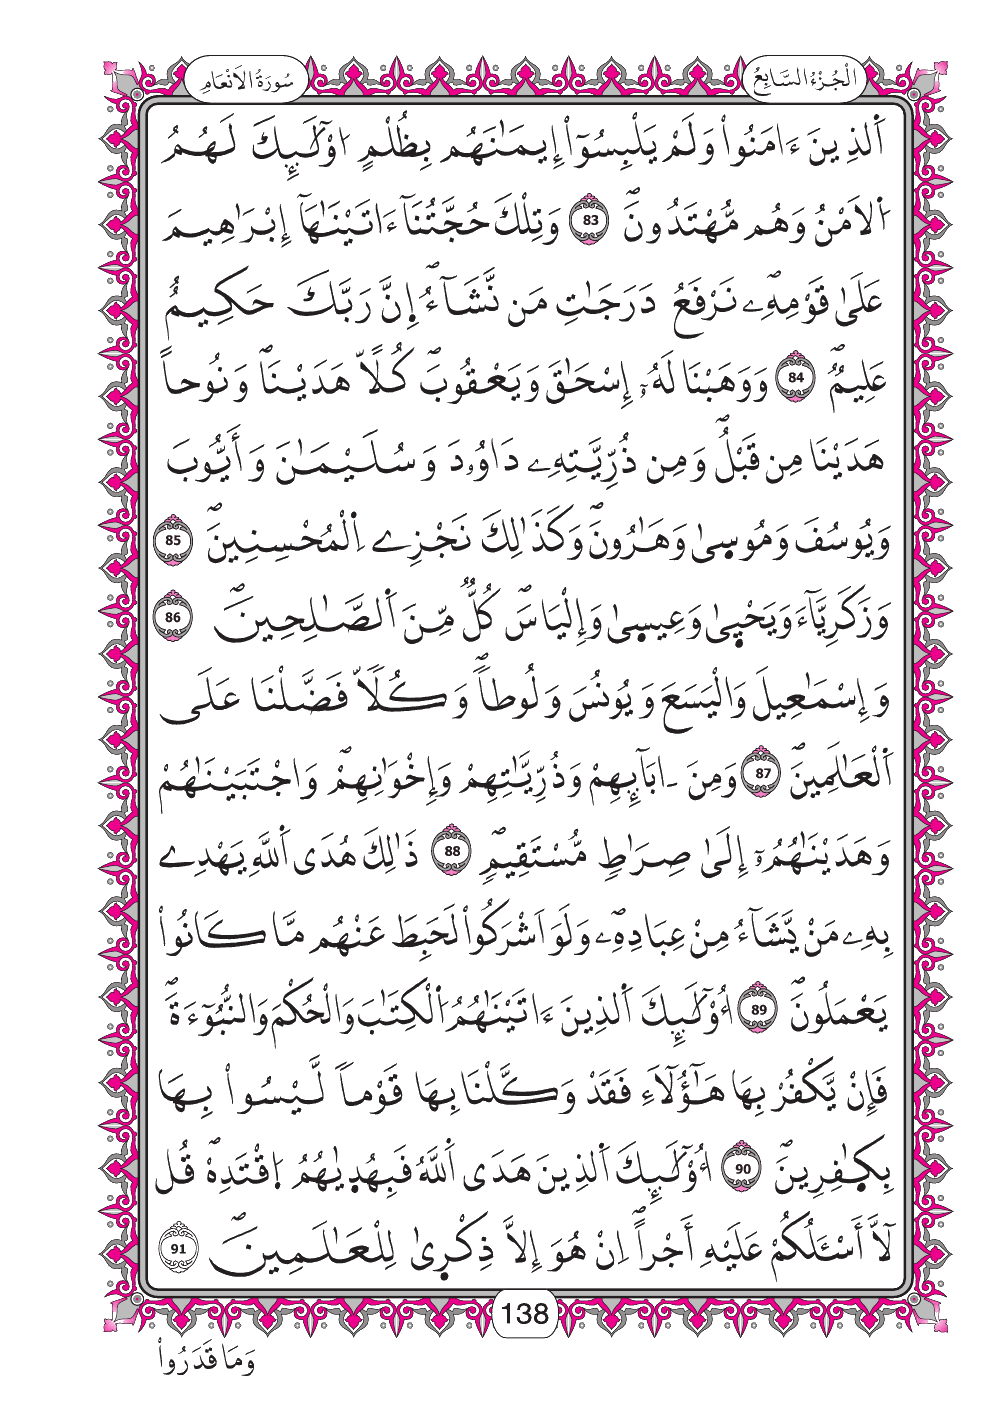 الْجُزْءُ السَّابِعُ
سُورَةُ الاَنْعَامِ
اَ۬لذِينَ ءَامَنُواْ وَلَمْ يَلْبِسُوٓاْ إِيمَٰنَهُم بِظُلْمٍ ا۟وْلَٰٓئِكَ لَهُمُ
اُ۬لَامْنُ وَهُم مُّهْتَدُونَۖ 83 وَتِلْكَ حُجَّتُنَآ ءَاتَيْنَٰهَآ إِبْرَٰهِيمَ
عَلَىٰ قَوْمِهِۦۖ نَرْفَعُ دَرَجَٰتِ مَن نَّشَآءُۖ إِنَّ رَبَّكَ حَكِيمٌ
عَلِيمٌۖ 84 وَوَهَبْنَا لَهُۥٓ إِسْحَٰقَ وَيَعْقُوبَۖ كُلّاً هَدَيْنَاۖ وَنُوحاً
هَدَيْنَا مِن قَبْلُۖ وَمِن ذُرِّيَّتِهِۦ دَاوُۥدَ وَسُلَيْمَٰنَ وَأَيُّوبَ
وَيُوسُفَ وَمُوس۪ىٰ وَهَٰرُونَۖ وَكَذَٰلِكَ نَجْزِے اِ۬لْمُحْسِنِينَۖ 85
وَزَكَرِيَّآءَ وَيَحْي۪ىٰ وَعِيس۪ىٰ وَإِلْيَاسَۖ كُلٌّ مِّنَ اَ۬لصَّٰلِحِينَۖ 86
وَإِسْمَٰعِيلَ وَالْيَسَعَ وَيُونُسَ وَلُوطاًۖ وَكُلّاً فَضَّلْنَا عَلَى
اَ۬لْعَٰلَمِينَۖ 87 وَمِنَ اٰبَآئِهِمْ وَذُرِّيَّٰتِهِمْ وَإِخْوَٰنِهِمْۖ وَاجْتَبَيْنَٰهُمْ
وَهَدَيْنَٰهُمُۥٓ إِلَىٰ صِرَٰطٍ مُّسْتَقِيمٍۖ 88 ذَٰلِكَ هُدَى اَ۬للَّهِ يَهْدِے
بِهِۦ مَنْ يَّشَآءُ مِنْ عِبَادِهِۦۖ وَلَوَ اَشْرَكُواْ لَحَبِطَ عَنْهُم مَّا كَانُواْ
يَعْمَلُونَۖ 89 أُوْلَٰٓئِكَ اَ۬لذِينَ ءَاتَيْنَٰهُمُ اُ۬لْكِتَٰبَ وَالْحُكْمَ وَالنُّبُوٓءَةَۖ
فَإِنْ يَّكْفُرْ بِهَا هَٰٓؤُلَآءِ فَقَدْ وَكَّلْنَا بِهَا قَوْماً لَّيْسُواْ بِهَا
بِكٰ۪فِرِينَۖ 90 أُوْلَٰٓئِكَ اَ۬لذِينَ هَدَى اَ۬للَّهُ فَبِهُد۪يٰهُمُ اُ۪قْتَدِهْۖ قُل
لَّآ أَسْـَٔلُكُمْ عَلَيْهِ أَجْراًۖ اِنْ هُوَ إِلَّا ذِكْر۪ىٰ لِلْعَٰلَمِينَۖ 91
138
وَمَا قَدَرُواْ